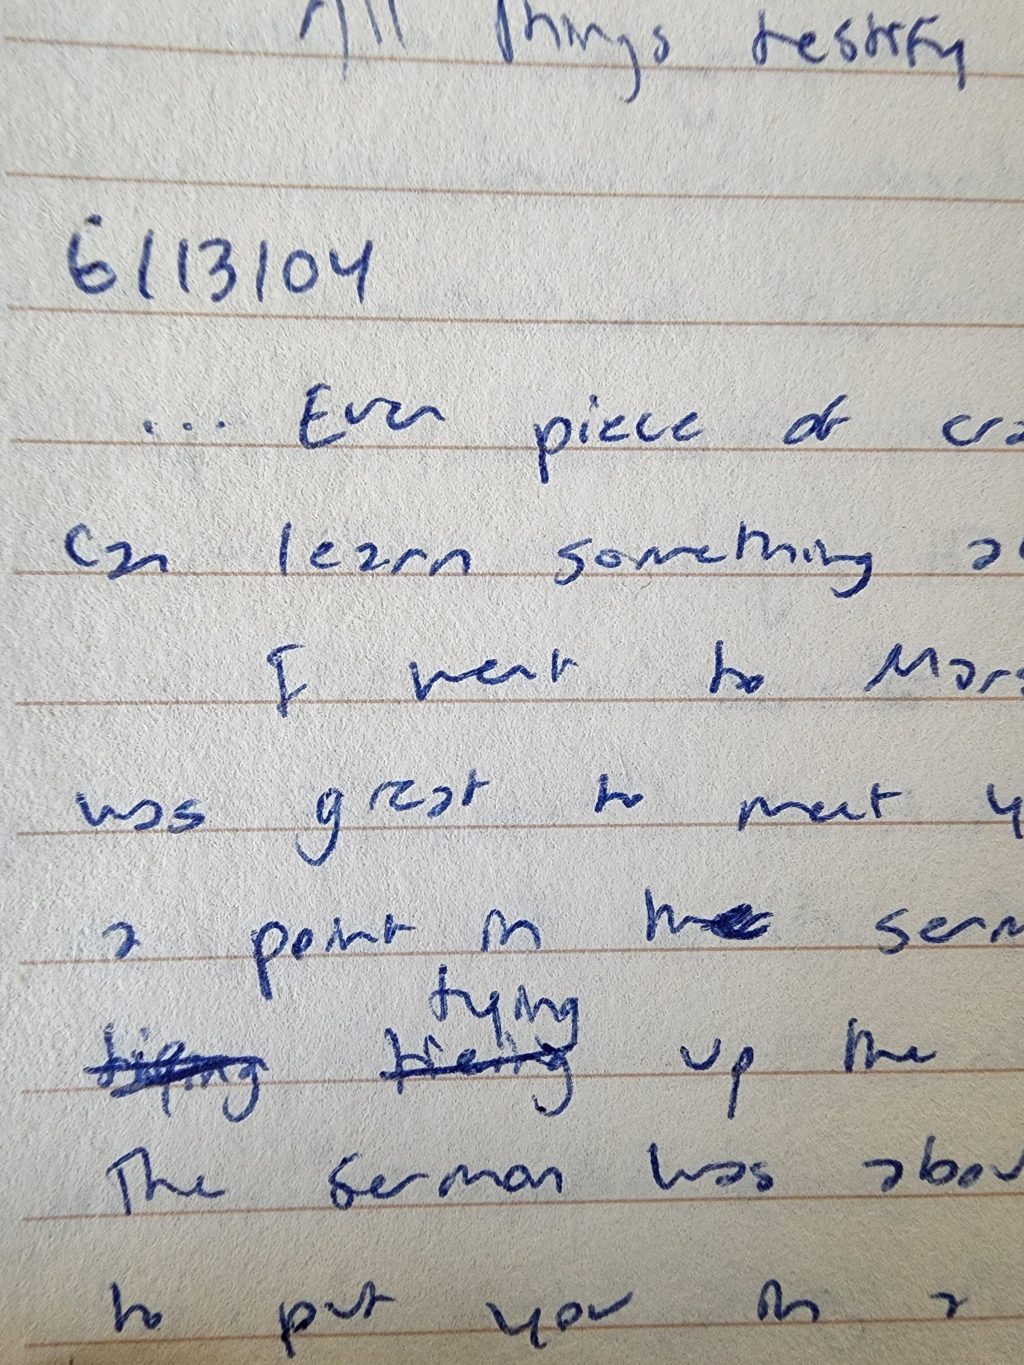 All things testify
6/13/04
... Even piece of cra
can learn something a
I went to Mars
was great to meet y
a point in the serm
tying
tieing up the
The sermon was abou
to put you in a